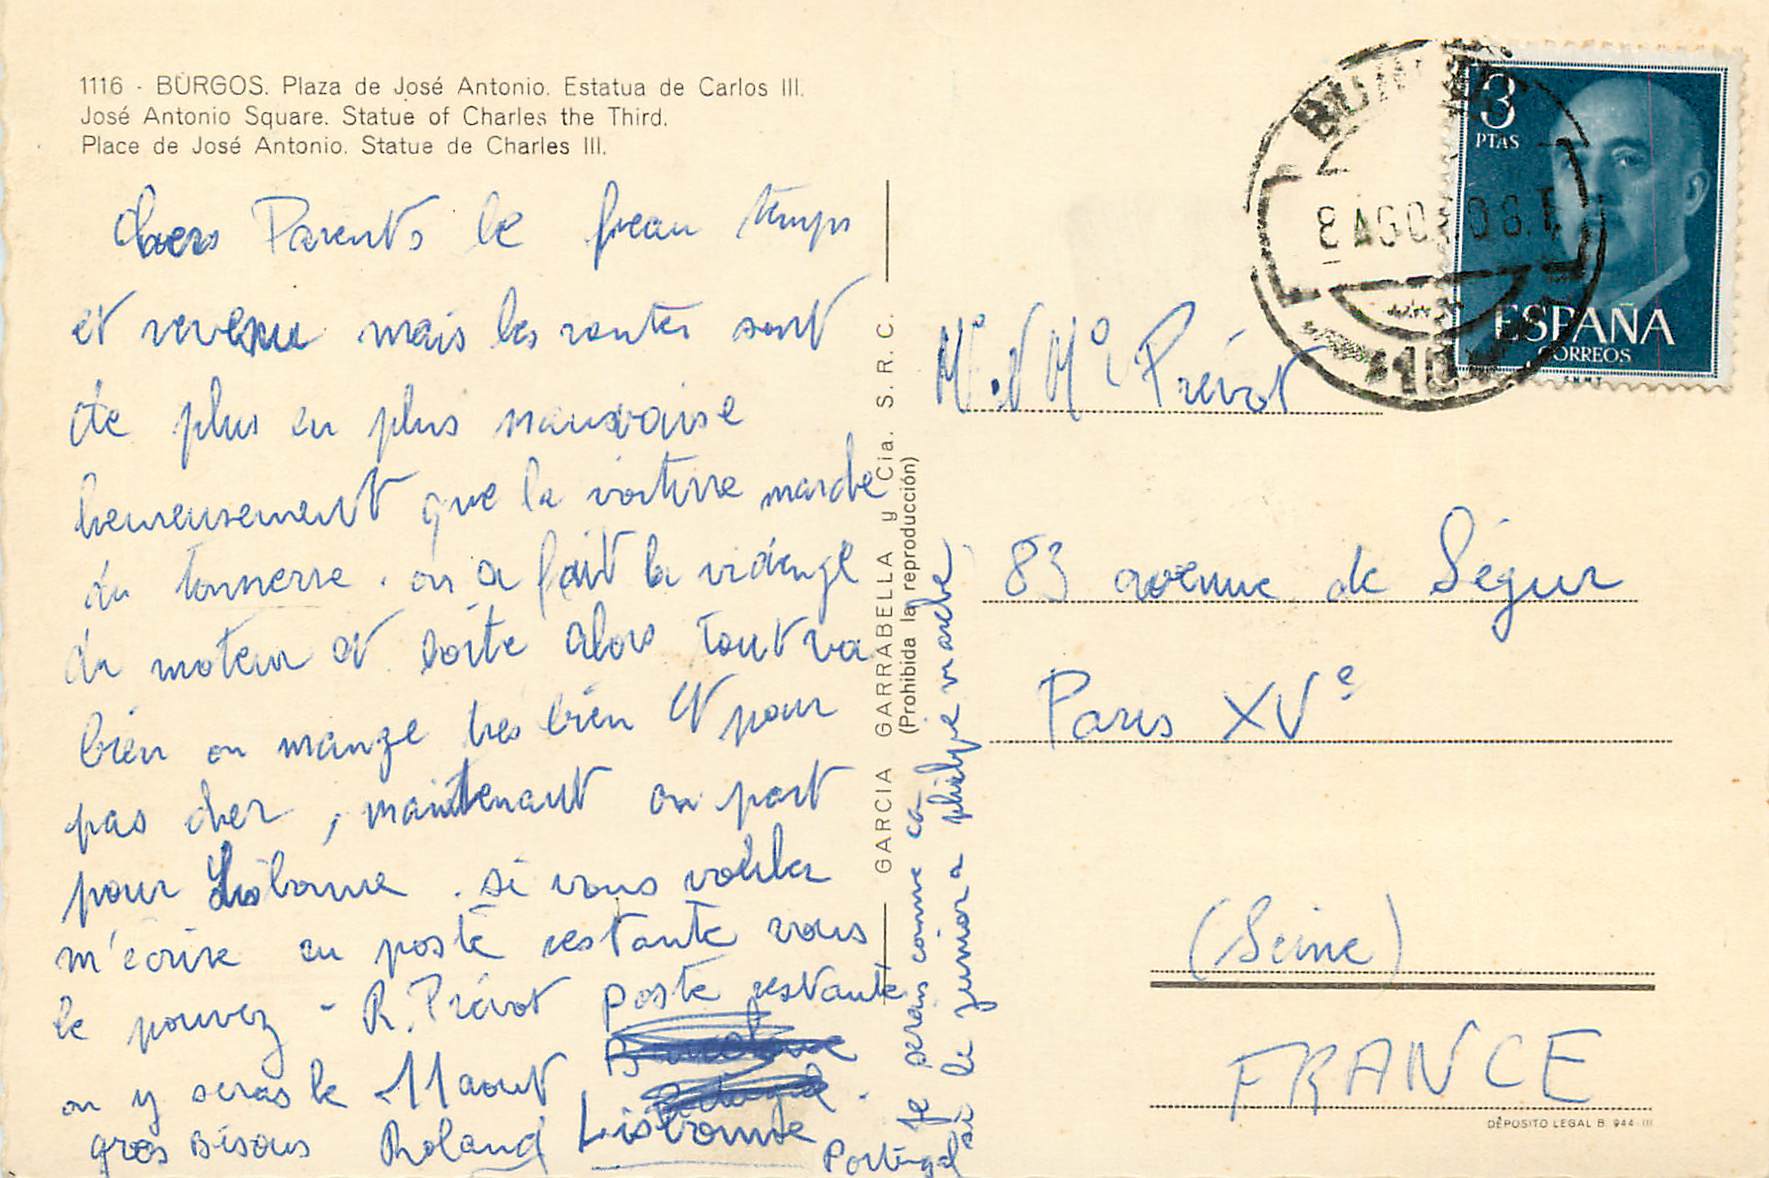 1116 - BURGOS. Plaza de José Antonio. Estatua de Carlos III.
José Antonio Square. Statue of Charles the Third.
Place de José Antonio. Statue de Charles III.
Chers Parents le beau temps
et revenu mais les routes sont
de plus en plus mauvaise
heureusement que la voiture marche
du tonnerre. on a fait la vidange
du moteur et boite alors tout va
bien on mange très bien et pour
pas cher, maintenant on part
pour Lisbonne. si vous voulez
m'écrire en poste restante vous
le pouvez - R. Prévot poste restante
on y seras le 11 aout Lisbonne
Portugal
gros Bisous Roland
Je serais comme ca
si le junior a philipe marche
GARCIA GARRABELLA y Cia. S. R. C.
(Prohibida la reproducción)
3
PTAS
ESPAÑA
CORREOS
8 AGO
10
Mr et Me Prévot
83 avenue de Ségur
Paris XVe
(Seine)
FRANCE
DÉPOSITO LEGAL B. 944-III